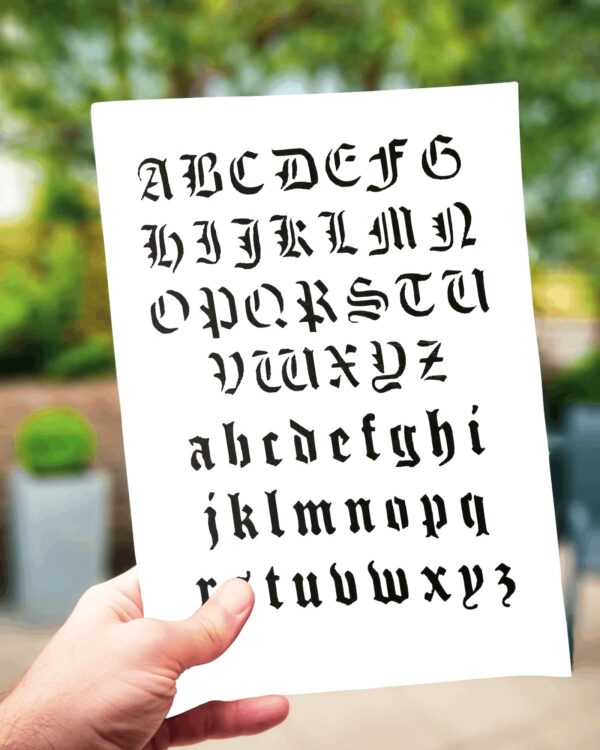 A B C D E F G
H I J K L M N
O P Q R S T U
V W X Y Z
a b c d e f g h i
j k l m n o p q
r t u v w x y z